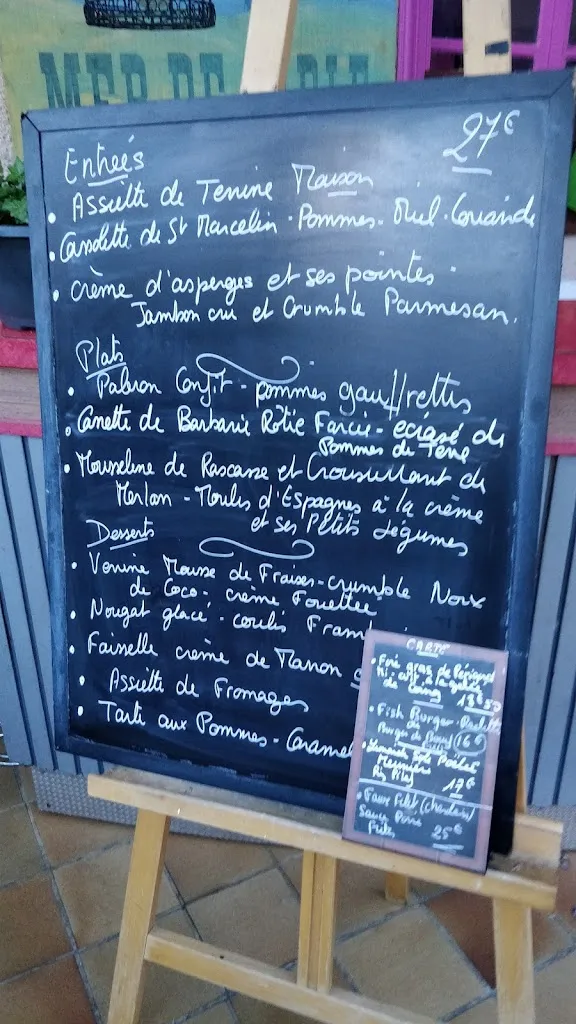 MER DE
27€
Entrées
• Assiette de Terrine Maison
• Candelette de St Marcelin - Pommes - Miel - Coriande
• Crème d'asperges et ses pointes -
Jambon cru et Crumble Parmesan.
Plats
• Paleron Confit - pommes gauffrettes
• Canette de Barbarie Rôtie Farcie - écrasé de
Pommes de Terre
• Mousseline de Rascasse et Croustillant de
Merlan - Moules d'Espagnes à la crème
et ses Petits Légumes
Desserts
• Verrine Mousse de Fraises - crumble Noix
de Coco - crème Fouettée
• Nougat glacé - coulis Fram
• Faisselle crème de Marron
• Assiette de Fromages
• Tarte aux Pommes - Caramel
CARTE
• Foie gras de Périgord
Mi-cuit à la gelée
de Coing 13€50
• Fish Burger
16€
Poêlée
Meunière
Riz Pilaf 17€
• Faux Filet (Charolais)
Sauce Poivre
Frites 25€